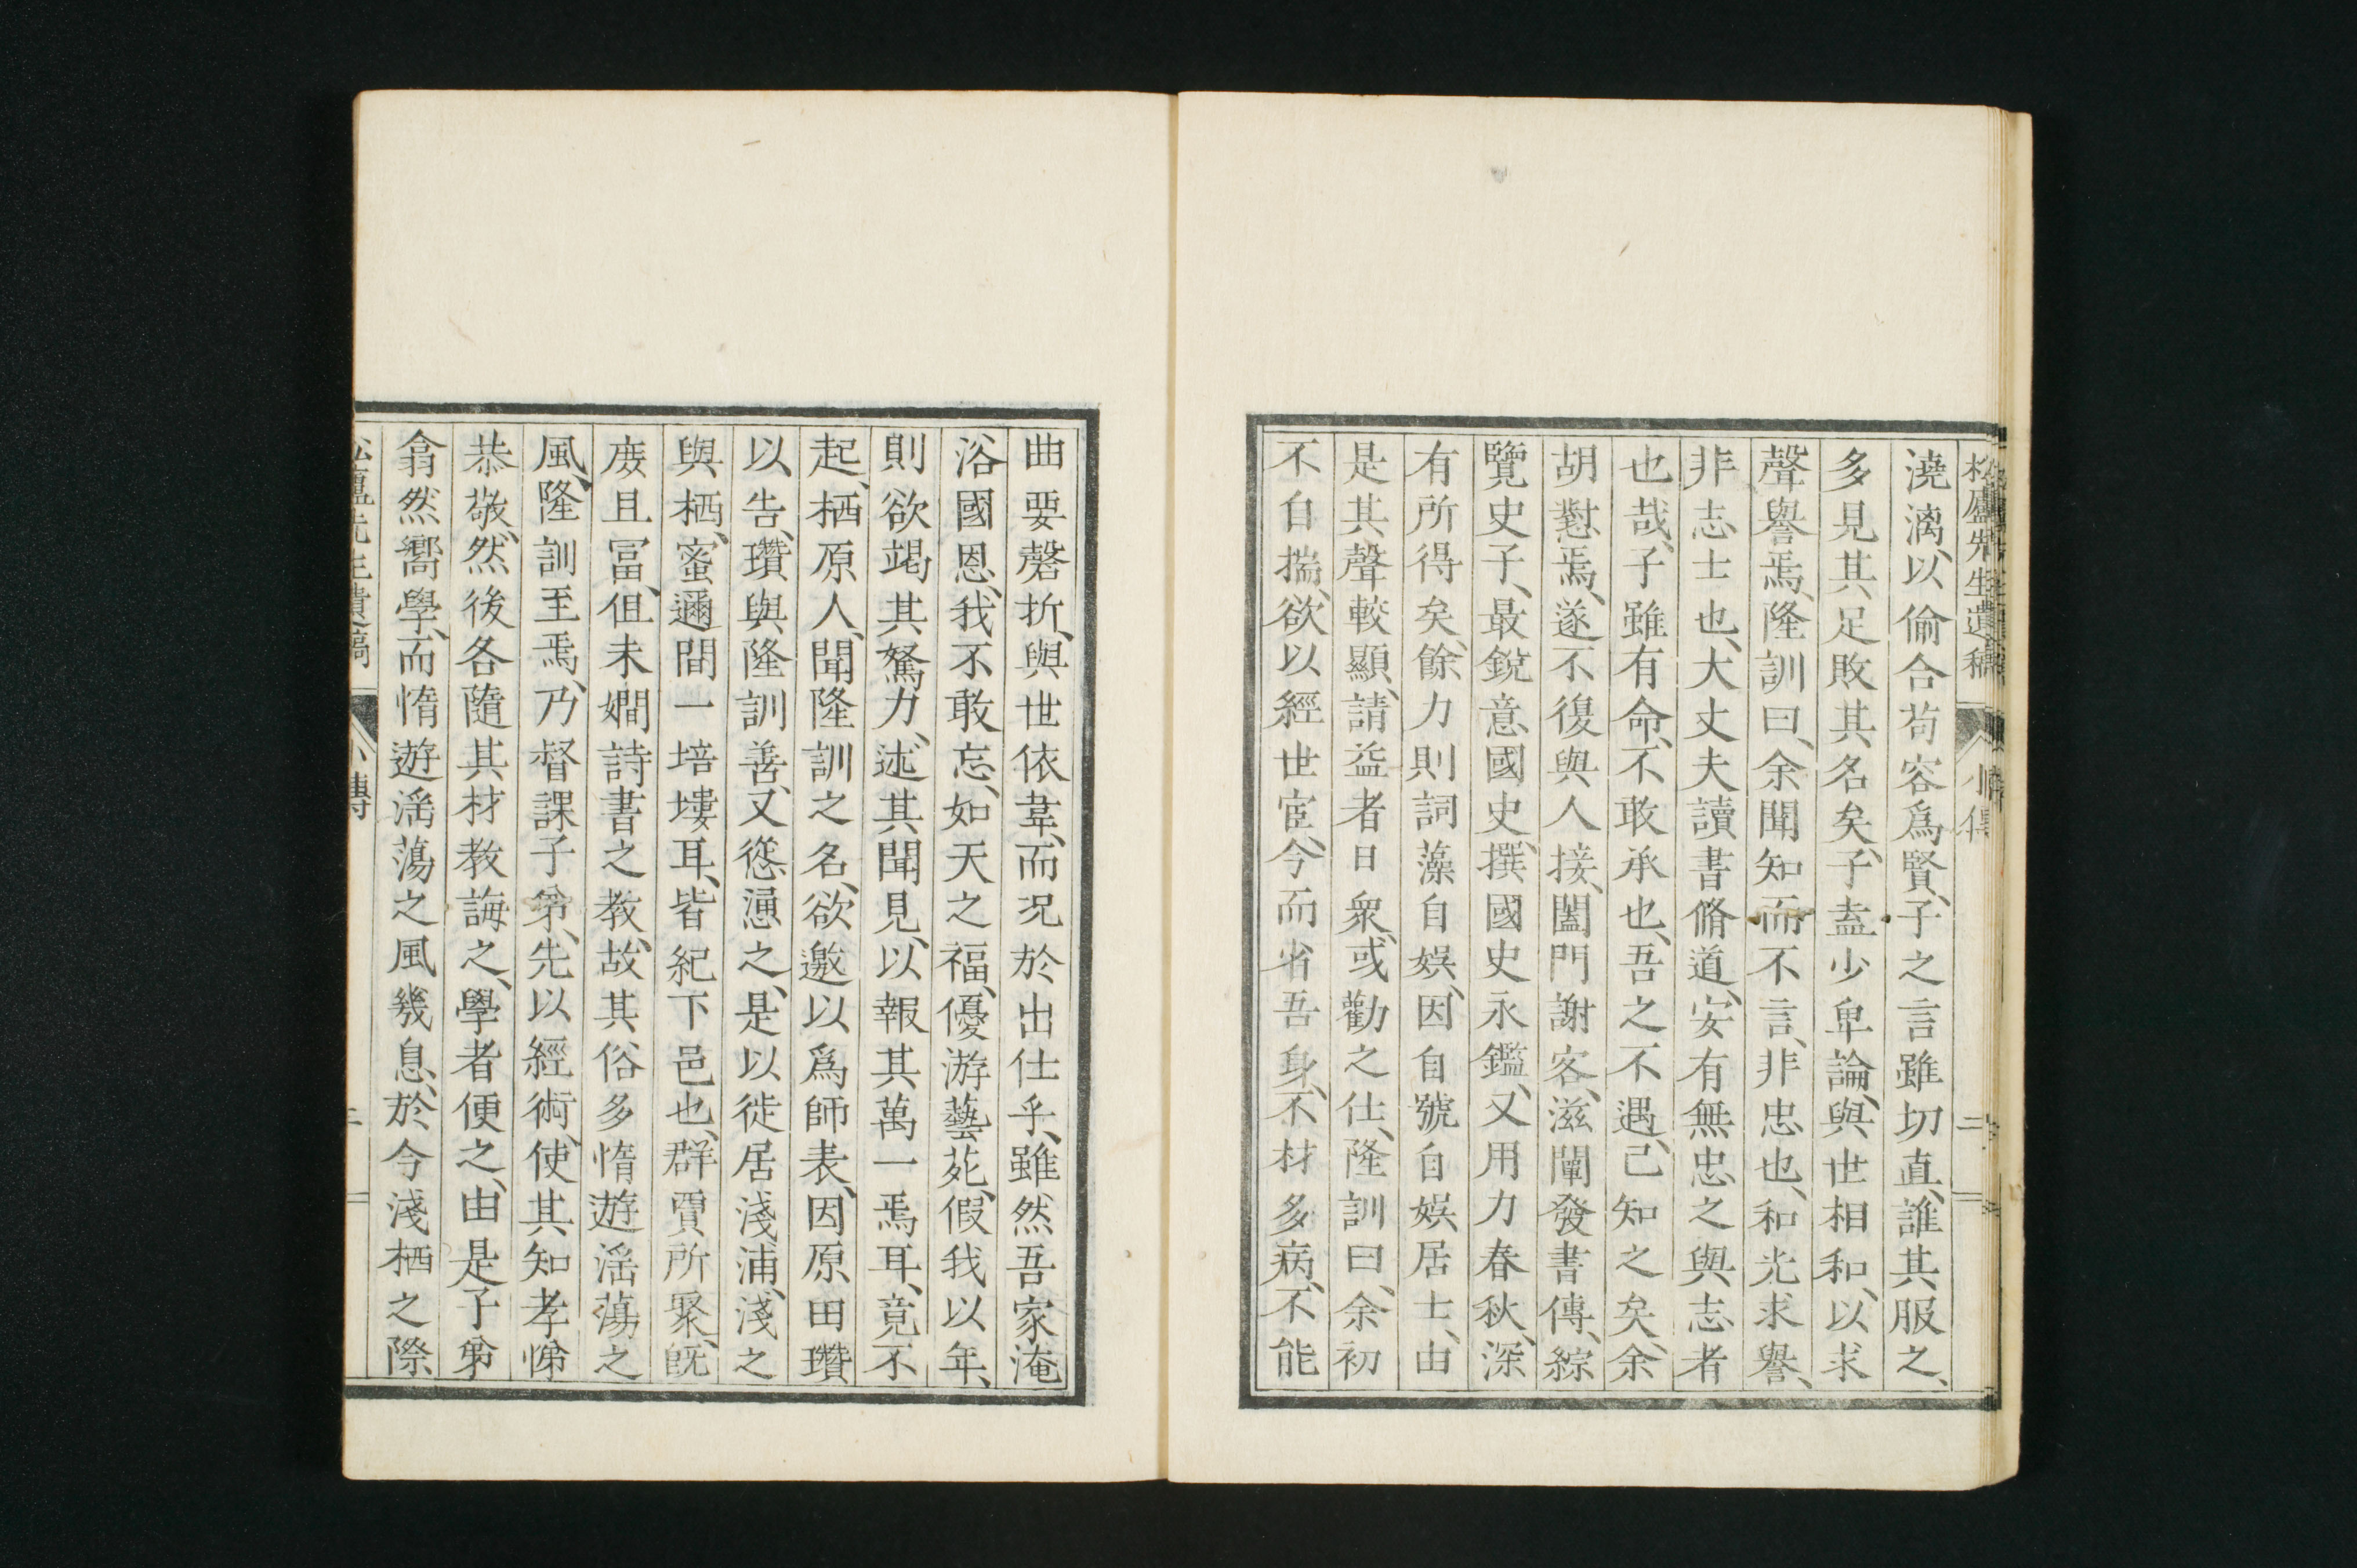 松廬先生遺稿 小傳 二
澆漓、以偷合苟容爲賢、子之言雖切直、誰其服之、
多見其足敗其名矣、子盍少卑論、與世相和、以求
聲譽焉、隆訓曰、余聞知而不言、非忠也、和光求譽、
非志士也、大丈夫讀書脩道、安有無忠之與志者
也哉、子雖有命、不敢承也、吾之不遇、己知之矣、余
胡懟焉、遂不復與人接、闔門謝客、滋闡發書傳、綜
覽史子、最銳意國史、撰國史永鑑、又用力春秋、深
有所得矣、餘力則詞藻自娛、因自號自娛居士、由
是其聲較顯、請益者日衆、或勸之仕、隆訓曰、余初
不自揣、欲以經世宦、今而省吾身、不材多病、不能
曲要磬折、與世依韋、而况於出仕乎、雖然吾家淹
浴國恩、我不敢忘、如天之福、優游藝苑、假我以年、
則欲竭其駑力、述其聞見、以報其萬一焉耳、竟不
起、栖原人、聞隆訓之名、欲邀以爲師表、因原田瓚
以告、瓚與隆訓善、又慫慂之、是以徙居淺浦、淺之
與栖、蜜邇間一培塿耳、皆紀下邑也、群賈所聚、旣
庶且冨、伹未嫺詩書之教、故其俗多惰遊滛蕩之
風、隆訓至焉、乃督課子弟、先以經術、使其知孝悌
恭敬、然後各隨其材教誨之、學者便之、由是子弟
翕然嚮學、而惰遊滛蕩之風幾息、於今淺栖之際
松廬先生遺稿 小傳